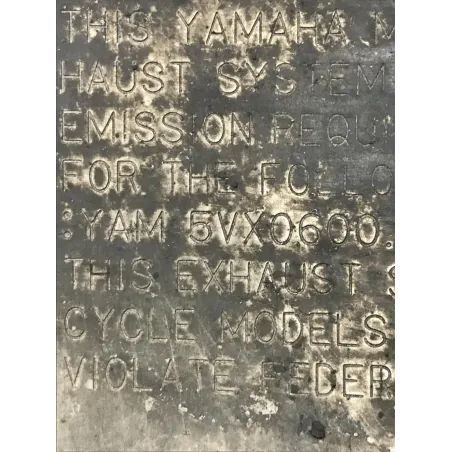 THIS YAMAHA M
HAUST SYSTEM
EMISSION REQUI
FOR THE FOLLO
:YAM 5VX0600.
THIS EXHAUST S
CYCLE MODELS
VIOLATE FEDER